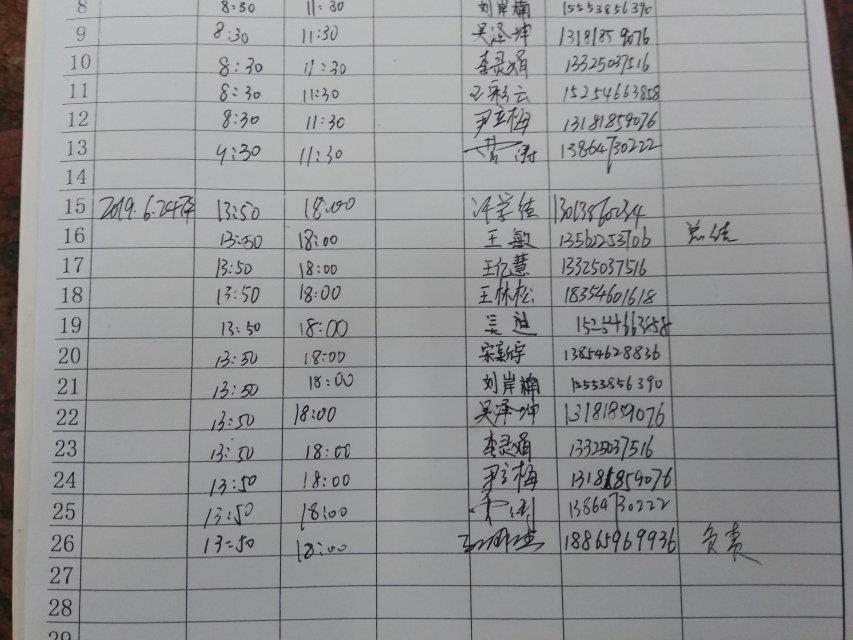 8 8:30 11:30 刘岸楠 15553856390
9 8:30 11:30 吴泽坤 13181859076
10 8:30 11:30 李灵娟 13325037516
11 8:30 11:30 王彩云 15254663858
12 8:30 11:30 尹立梅 13181859076
13 11:30 13864730222
14
15 2019.6.24 13:50 18:00 13013860234
16 13:50 18:00 王敏 13562253706 总结
17 13:50 18:00 王亿慧 13325037516
18 13:50 18:00 王林松 18354601618
19 13:50 18:00 吴迪 15254663858
20 13:50 18:00 13854628836
21 13:50 18:00 刘岸楠 15553856390
22 13:50 18:00 吴泽坤 13181859076
23 13:50 18:00 李灵娟 13325037516
24 13:50 18:00 尹立梅 13181859076
25 13:50 18:00 13864730222
26 13:50 18:00 18865969936 负责
27
28
29